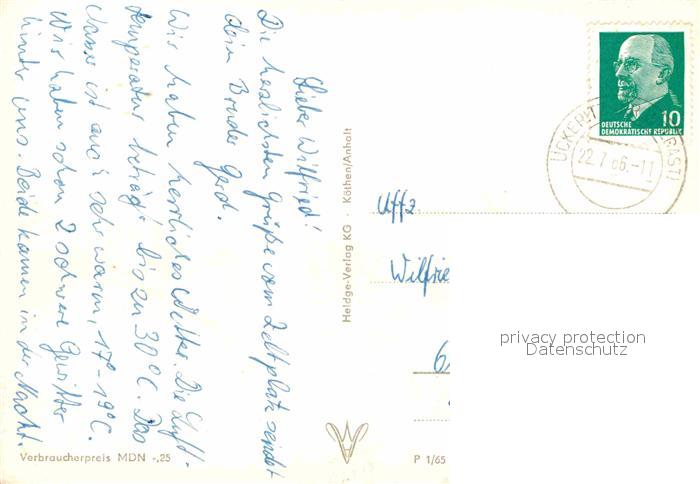 Lieber Wilfried!
Die herzlichsten Grüße vom Zeltplatz sendet
dein Bruder Gerd.
Wir haben herrliches Wetter. Die Luft-
temperatur beträgt bis zu 30°C. Das
Wasser ist auch sehr warm, 17°-19°C.
Wir haben schon 2 schwere Gewitter
hinter uns. Beide kamen in der Nacht.
Verbraucherpreis MDN -,25
Heldge-Verlag KG · Köthen/Anhalt
P 1/65
10
DEUTSCHE
DEMOKRATISCHE REPUBLIK
22.7.66.-11
Uffz.
Wilfrie
privacy protection
Datenschutz